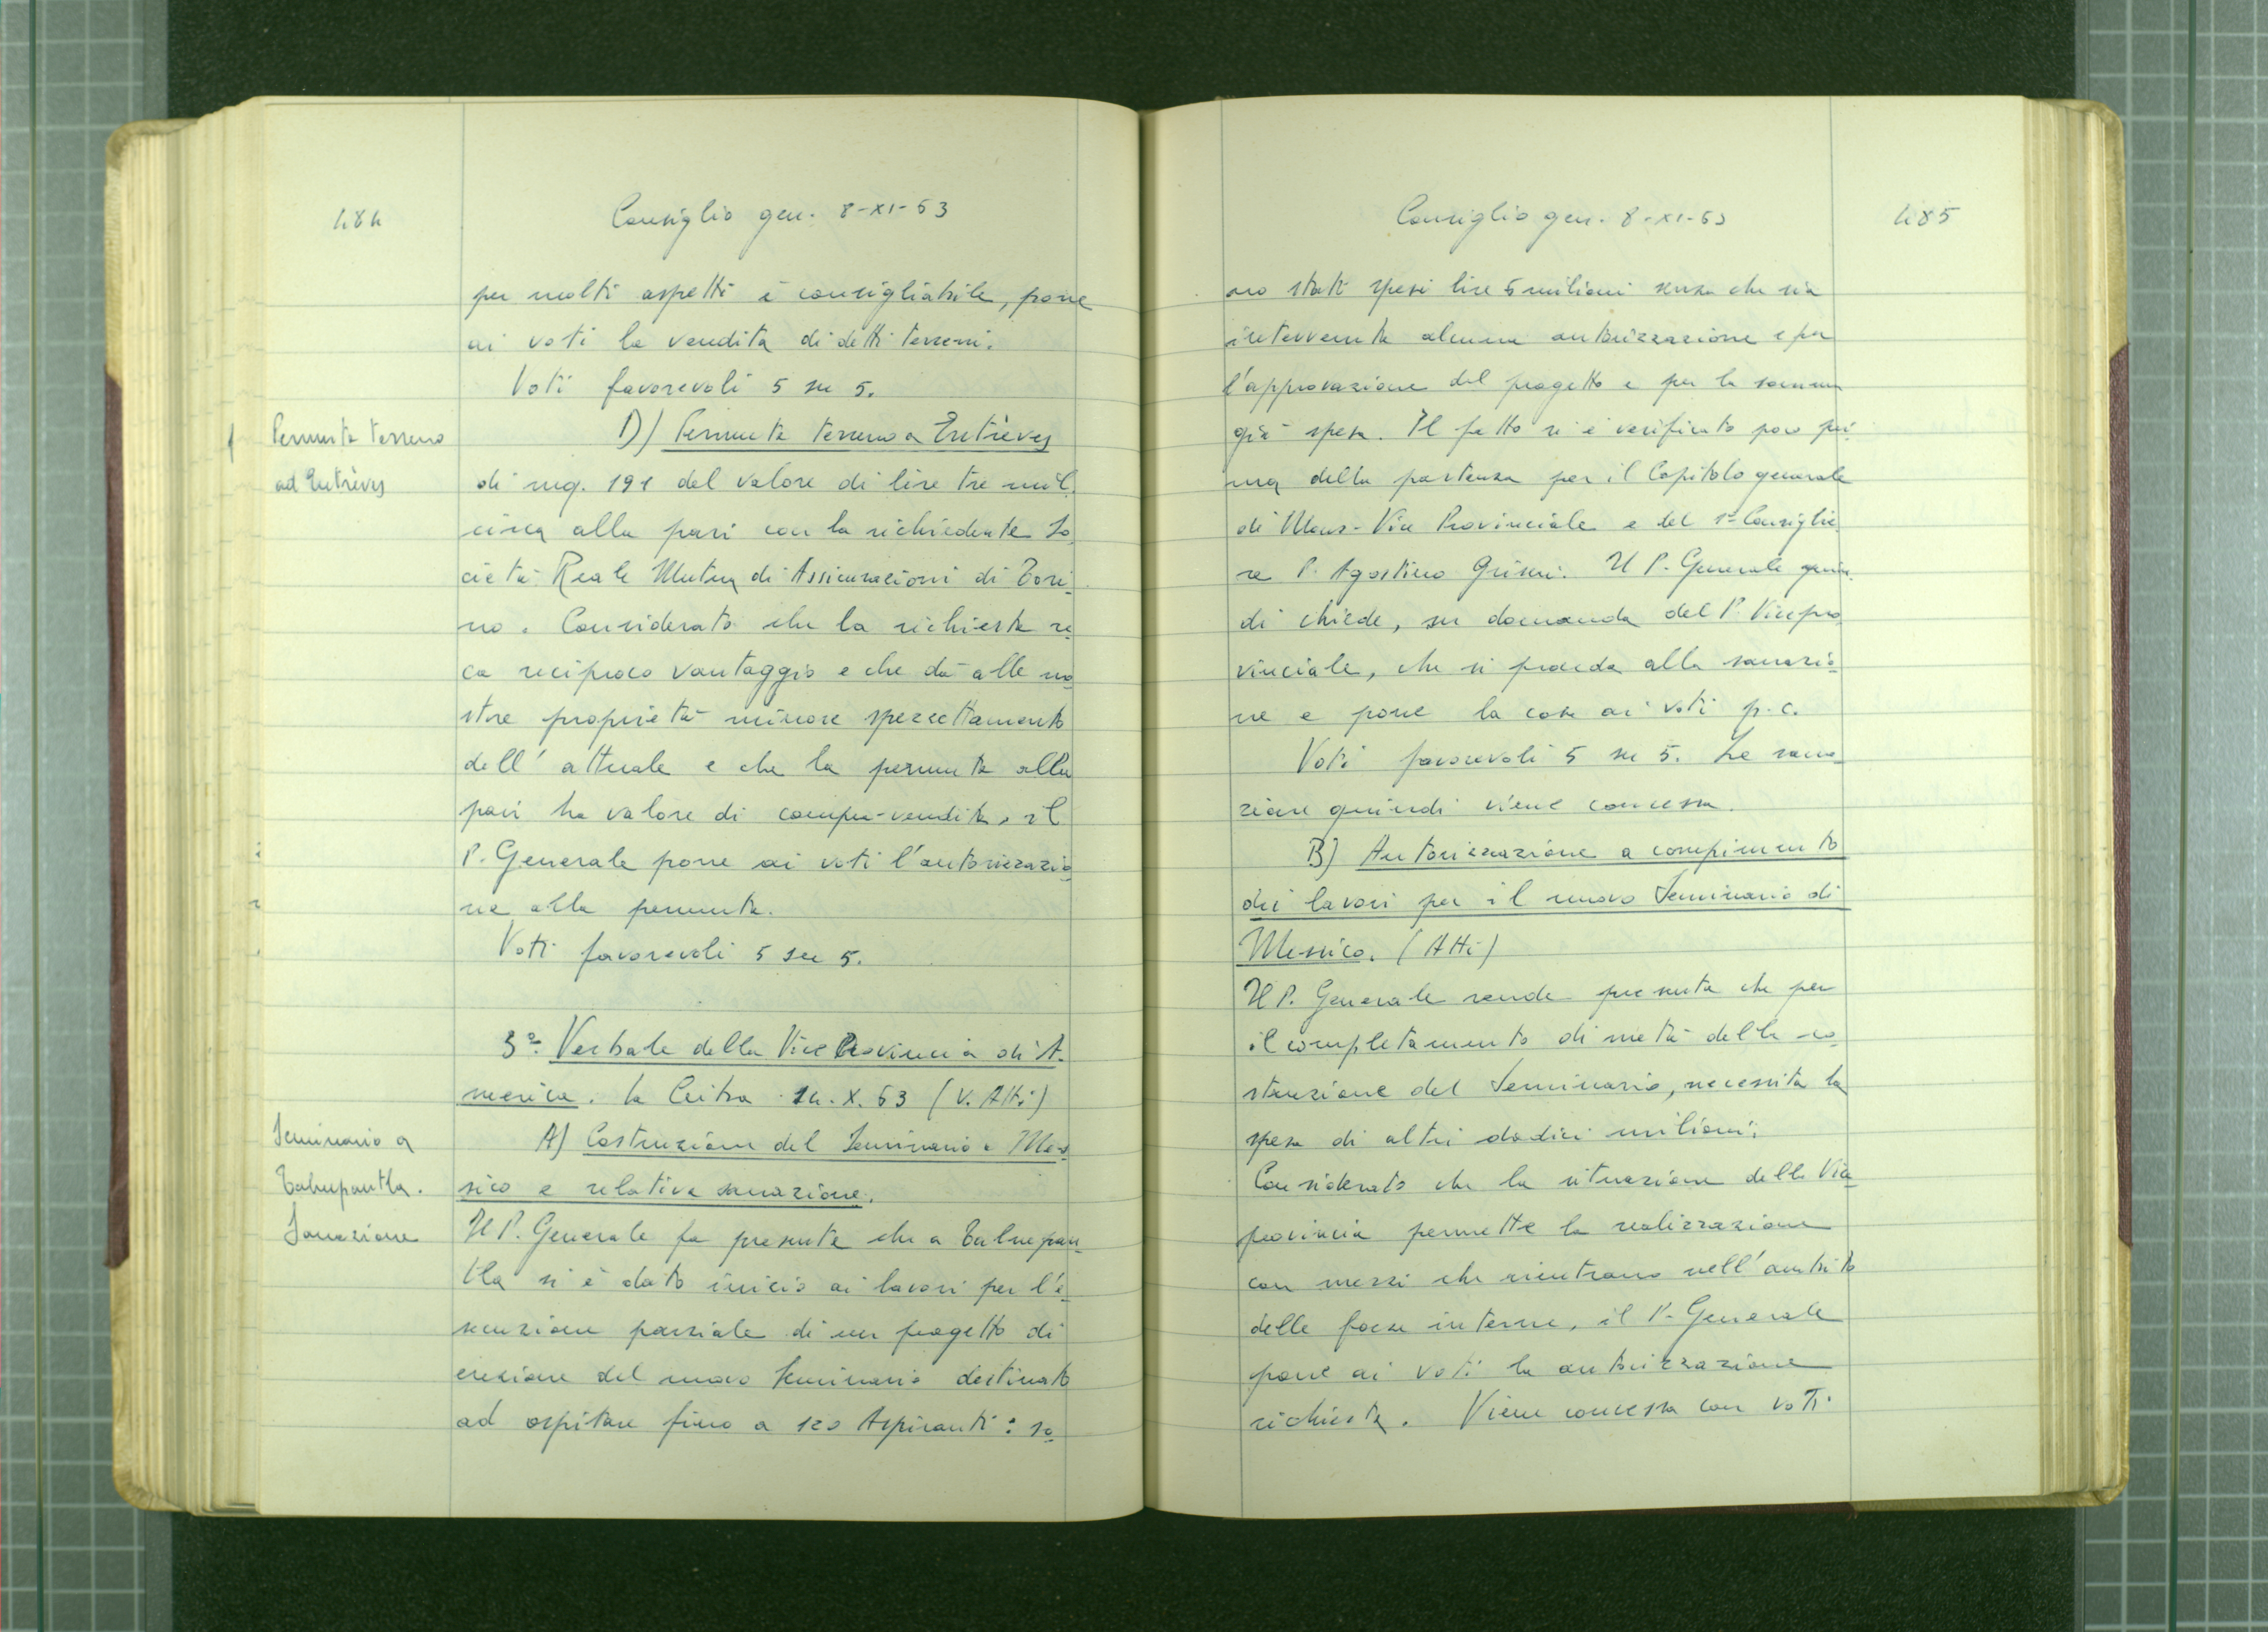 484
Consiglio gen. 8-XI-63
per molti aspetti è consigliabile, pone
ai voti la vendita di detti terreni.
Voti favorevoli 5 su 5.
Permuta terreno
ad Entrèves
D) Permuta terreno a Entrèves
di mq. 191 del valore di lire tre mil.
circa alla pari con la richiedente So_
cietà Reale Mutua di Assicurazioni di Tori_
no. Considerato che la richiesta re_
ca reciproco vantaggio e che dà alle no_
stre proprietà minore spezzettamento
dell'attuale e che la permuta alla
pari ha valore di compra-vendita, il
P. Generale pone ai voti l'autorizzazio_
ne alla permuta.
Voti favorevoli 5 su 5.
3º. Verbale della Vice Provincia di A_
merica. La 14.X.63 (V. Atti)
Seminario a
Talnepantla.
Sanazione
A) Costruzione del Seminario a Mes_
sico e relativa sanazione.
Il P. Generale fa presente che a Talnepan_
tla si è dato inizio ai lavori per l'e_
secuzione parziale di un progetto di
erezione del nuovo Seminario destinato
ad ospitare fino a 120 Aspiranti: so_
Consiglio gen. 8-XI-63
485
no stati spesi lire 5 milioni senza che sia
intervenuta alcuna autorizzazione e per
l'approvazione del progetto e per la somma
già spesa. Il fatto si è verificato poco pri_
ma della partenza per il Capitolo generale
di Mons. Vice Provinciale e del 1º Consiglie_
re P. Agostino Grimi. Il P. Generale quin_
di chiede, su domanda del P. Vicepro_
vinciale, che si proceda alla sanazio_
ne e pone la cosa ai voti p.c.
Voti favorevoli 5 su 5. La sana_
zione quindi viene concessa.
B) Autorizzazione a compimento
dei lavori per il nuovo Seminario di
Messico. (Atti)
Il P. Generale rende presente che per
il completamento di metà della co_
struzione del Seminario, necessita la
spesa di altri dodici milioni;
Considerato che la situazione della Vice
provincia permette la realizzazione
con mezzi che rientrano nell'ambito
delle forze interne, il P. Generale
pone ai voti la autorizzazione
richiesta. Viene concessa con voti